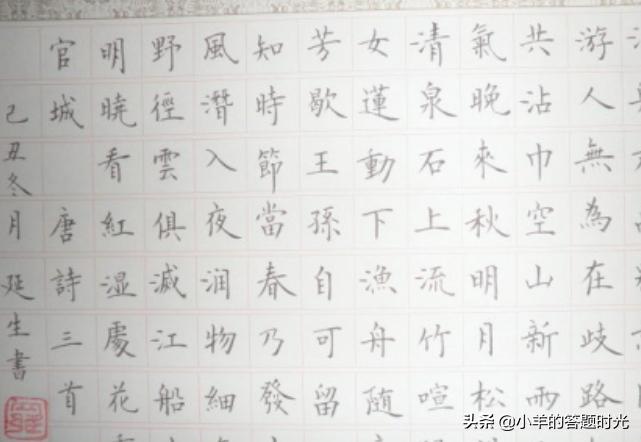 游人無為在歧路
共沾巾空山新雨
氣晚來秋明月松
清泉石上流竹喧
女蓮動下漁舟随
芳歇王孫自可留
知時節當春乃發
風潛入夜润物細
野徑雲俱滅江船
明曉看紅湿處花
官城 唐詩三首
己丑冬月延生書
头条 @小羊的答题时光